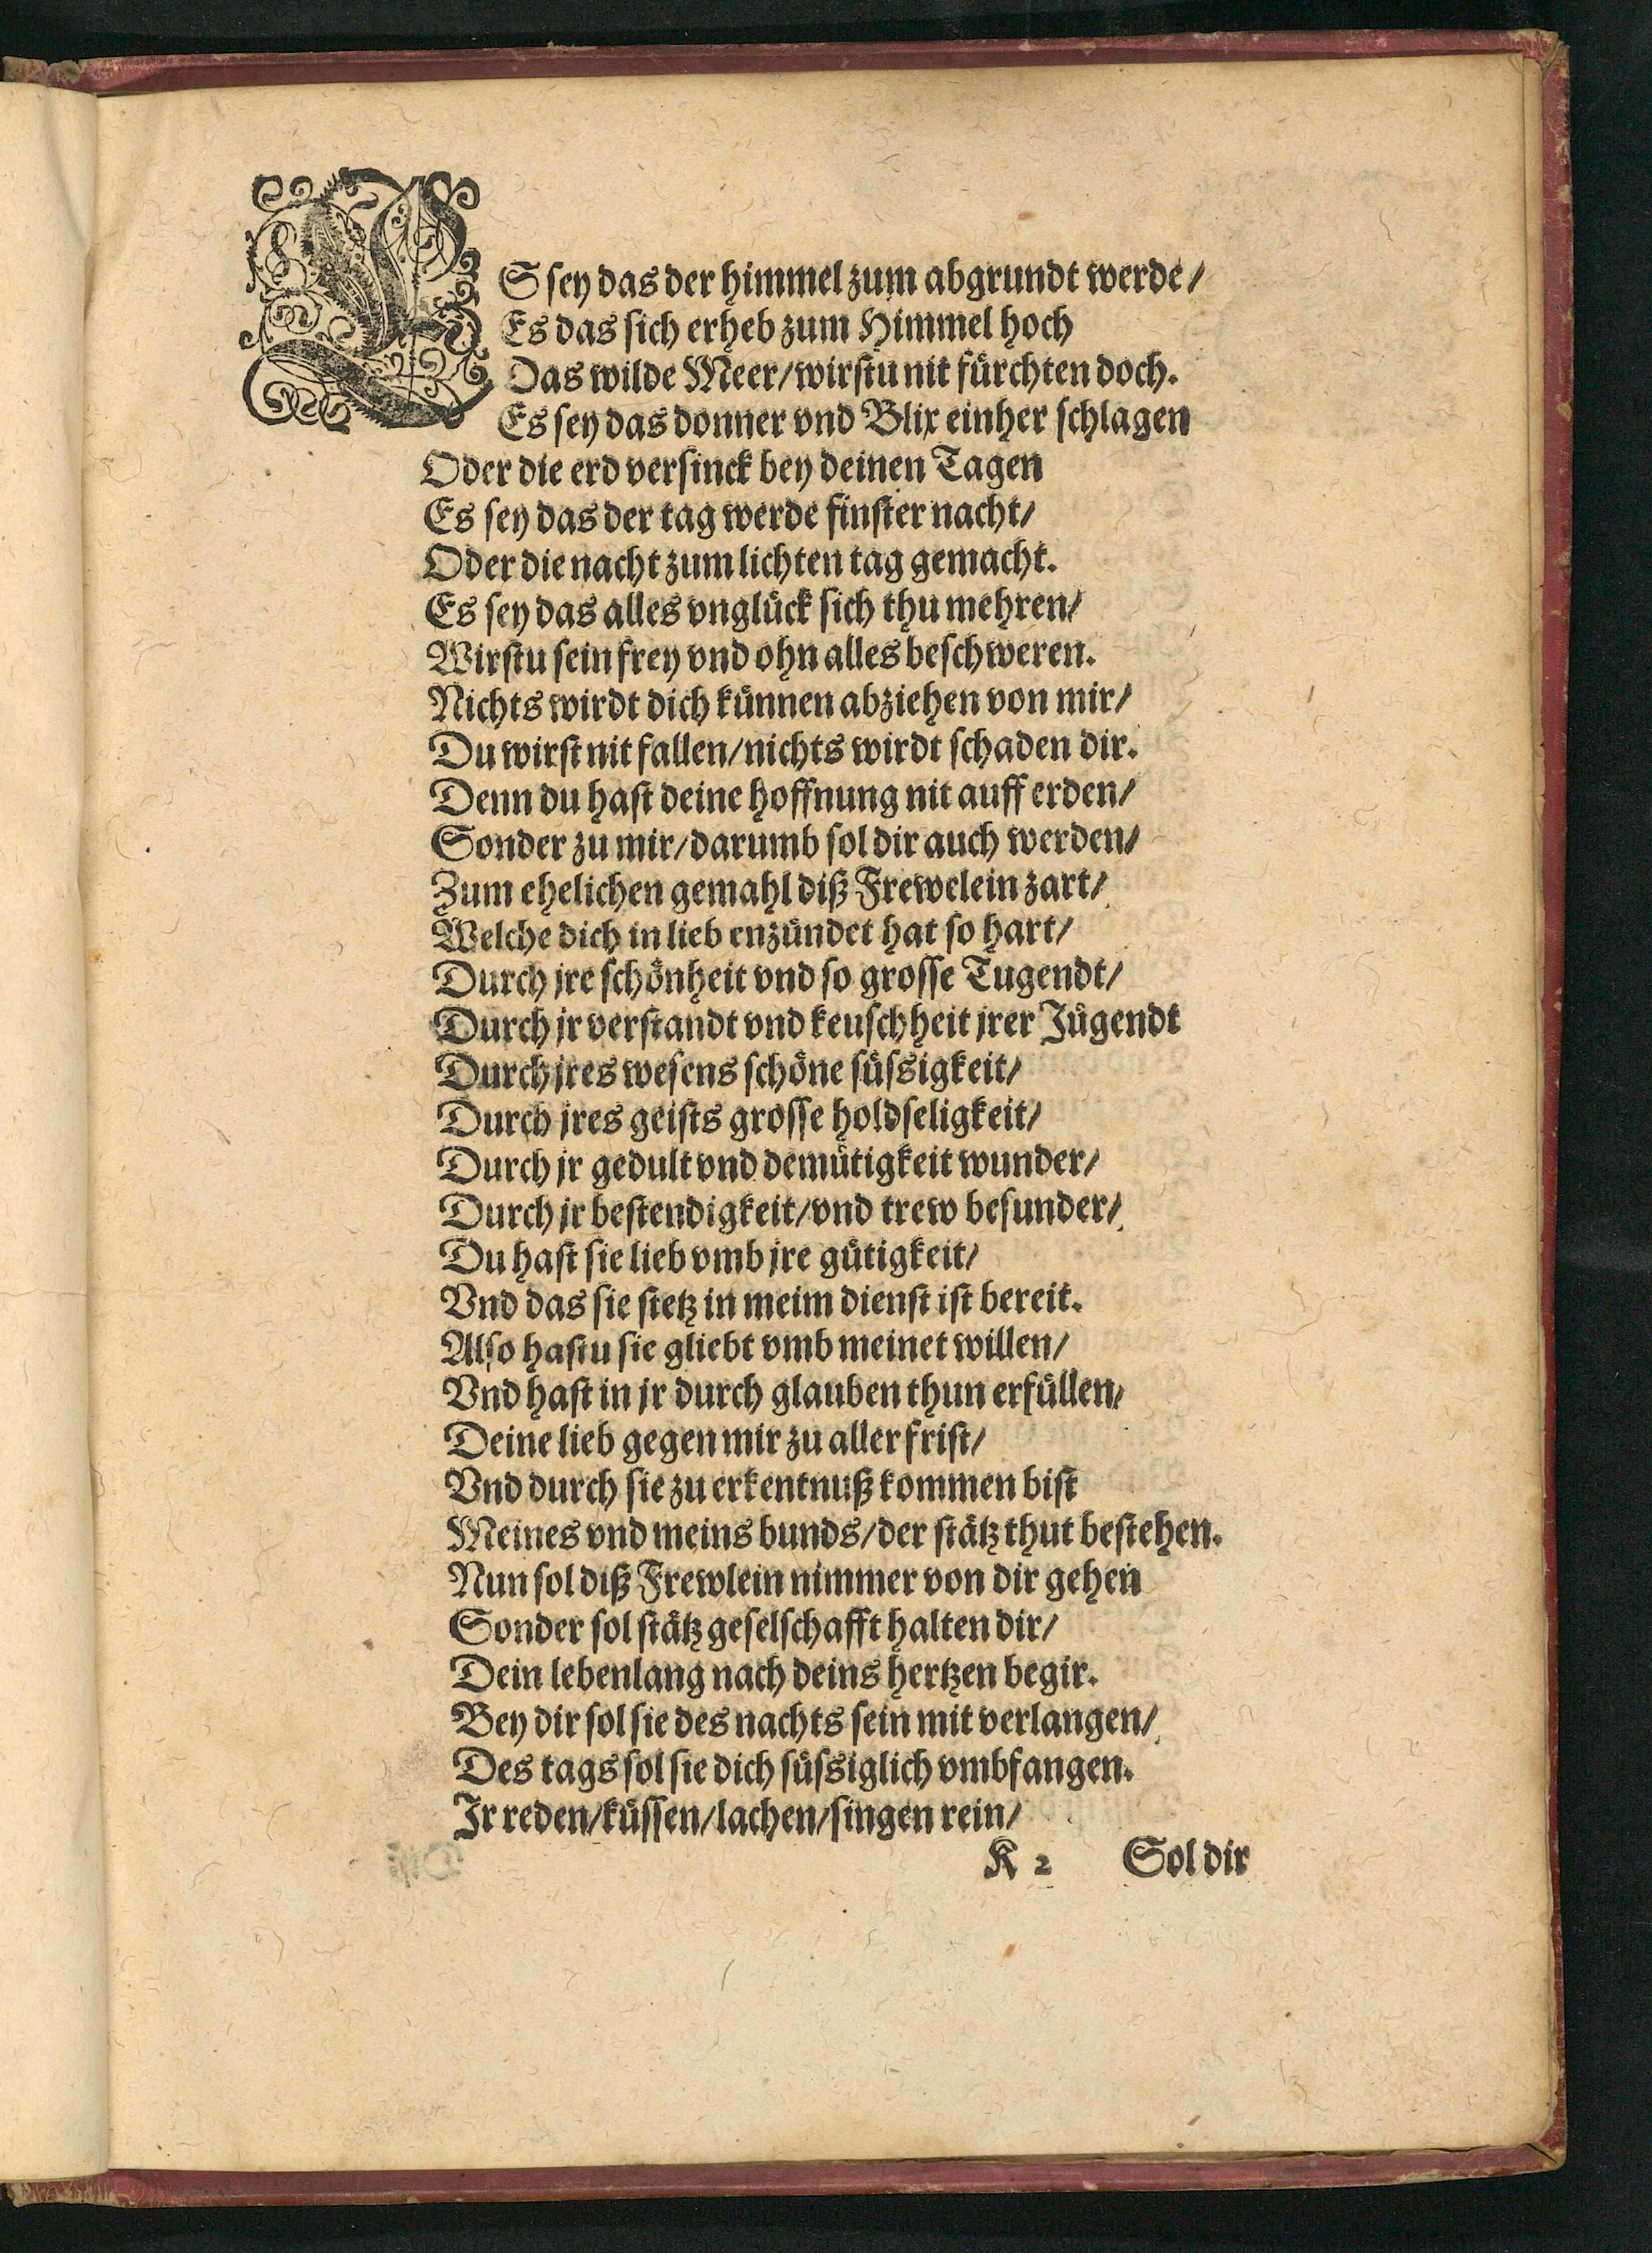 ES sey das der himmel zum abgrundt werde/
Es das sich erheb zum Himmel hoch
Das wilde Meer/wirstu nit fürchten doch.
Es sey das donner vnd Blix einher schlagen
Oder die erd versinck bey deinen Tagen
Es sey das der tag werde finster nacht/
Oder die nacht zum lichten tag gemacht.
Es sey das alles vnglück sich thu mehren/
Wirstu sein frey vnd ohn alles beschweren.
Nichts wirdt dich künnen abziehen von mir/
Du wirst nit fallen/nichts wirdt schaden dir.
Denn du hast deine hoffnung nit auff erden/
Sonder zu mir/darumb sol dir auch werden/
Zum ehelichen gemahl diß Frewelein zart/
Welche dich in lieb enzündet hat so hart/
Durch jre schönheit vnd so grosse Tugendt/
Durch jr verstandt vnd keuschheit jrer Jügendt
Durch jres wesens schöne süssigkeit/
Durch jres geists grosse holdseligkeit/
Durch jr gedult vnd demütigkeit wunder/
Durch jr bestendigkeit/vnd trew besunder/
Du hast sie lieb vmb jre gütigkeit/
Vnd das sie stetz in meim dienst ist bereit.
Also hastu sie gliebt vmb meinet willen/
Vnd hast in jr durch glauben thun erfüllen/
Deine lieb gegen mir zu aller frist/
Vnd durch sie zu erkentnuß kommen bist
Meines vnd meins bunds/der stätz thut bestehen.
Nun sol diß Frewlein nimmer von dir gehen
Sonder sol stätz geselschafft halten dir/
Dein lebenlang nach deins hertzen begir.
Bey dir sol sie des nachts sein mit verlangen/
Des tags sol sie dich süssiglich vmbfangen.
Jr reden/küssen/lachen/singen rein/
K 2 Sol dir